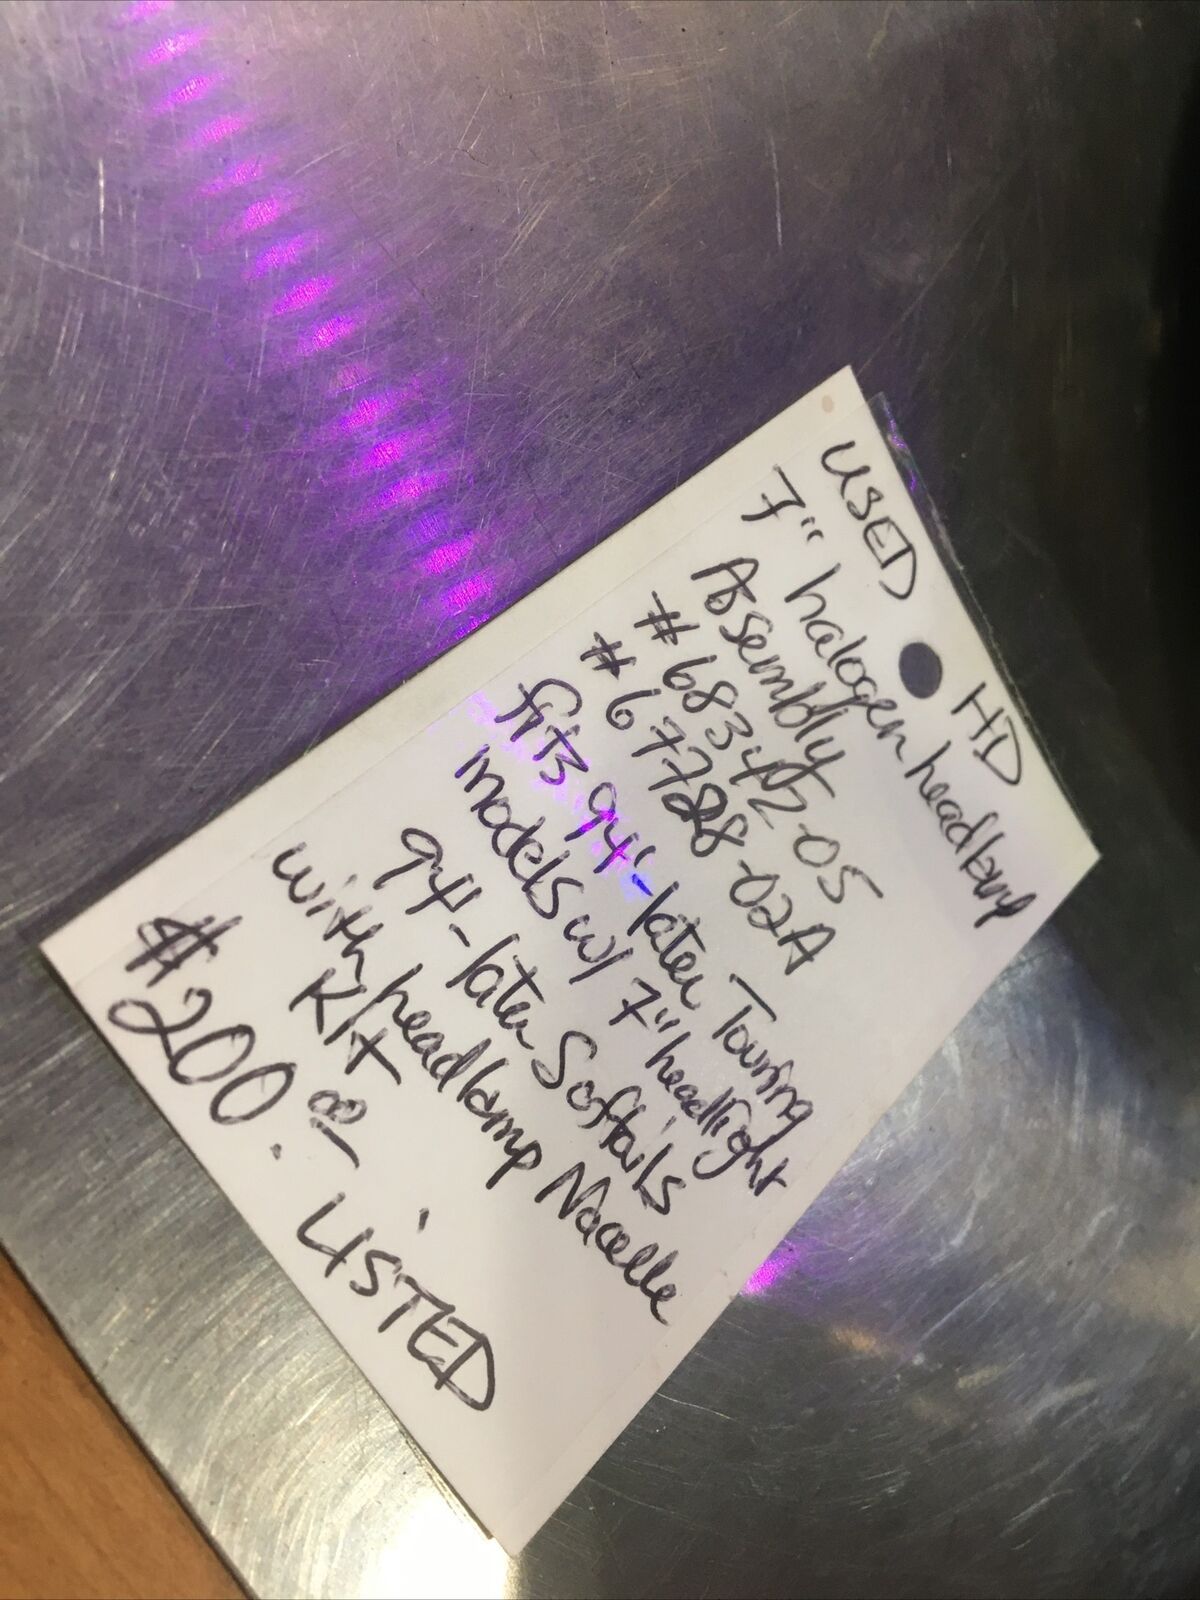 USED HD
7" halogen headlamp
Assembly
#68342-05
#67728-02A
fits 94'-later Touring
models w/ 7" headlight
94'-later Softails
with headlamp Nacelle
Kit
$200.00
LISTED